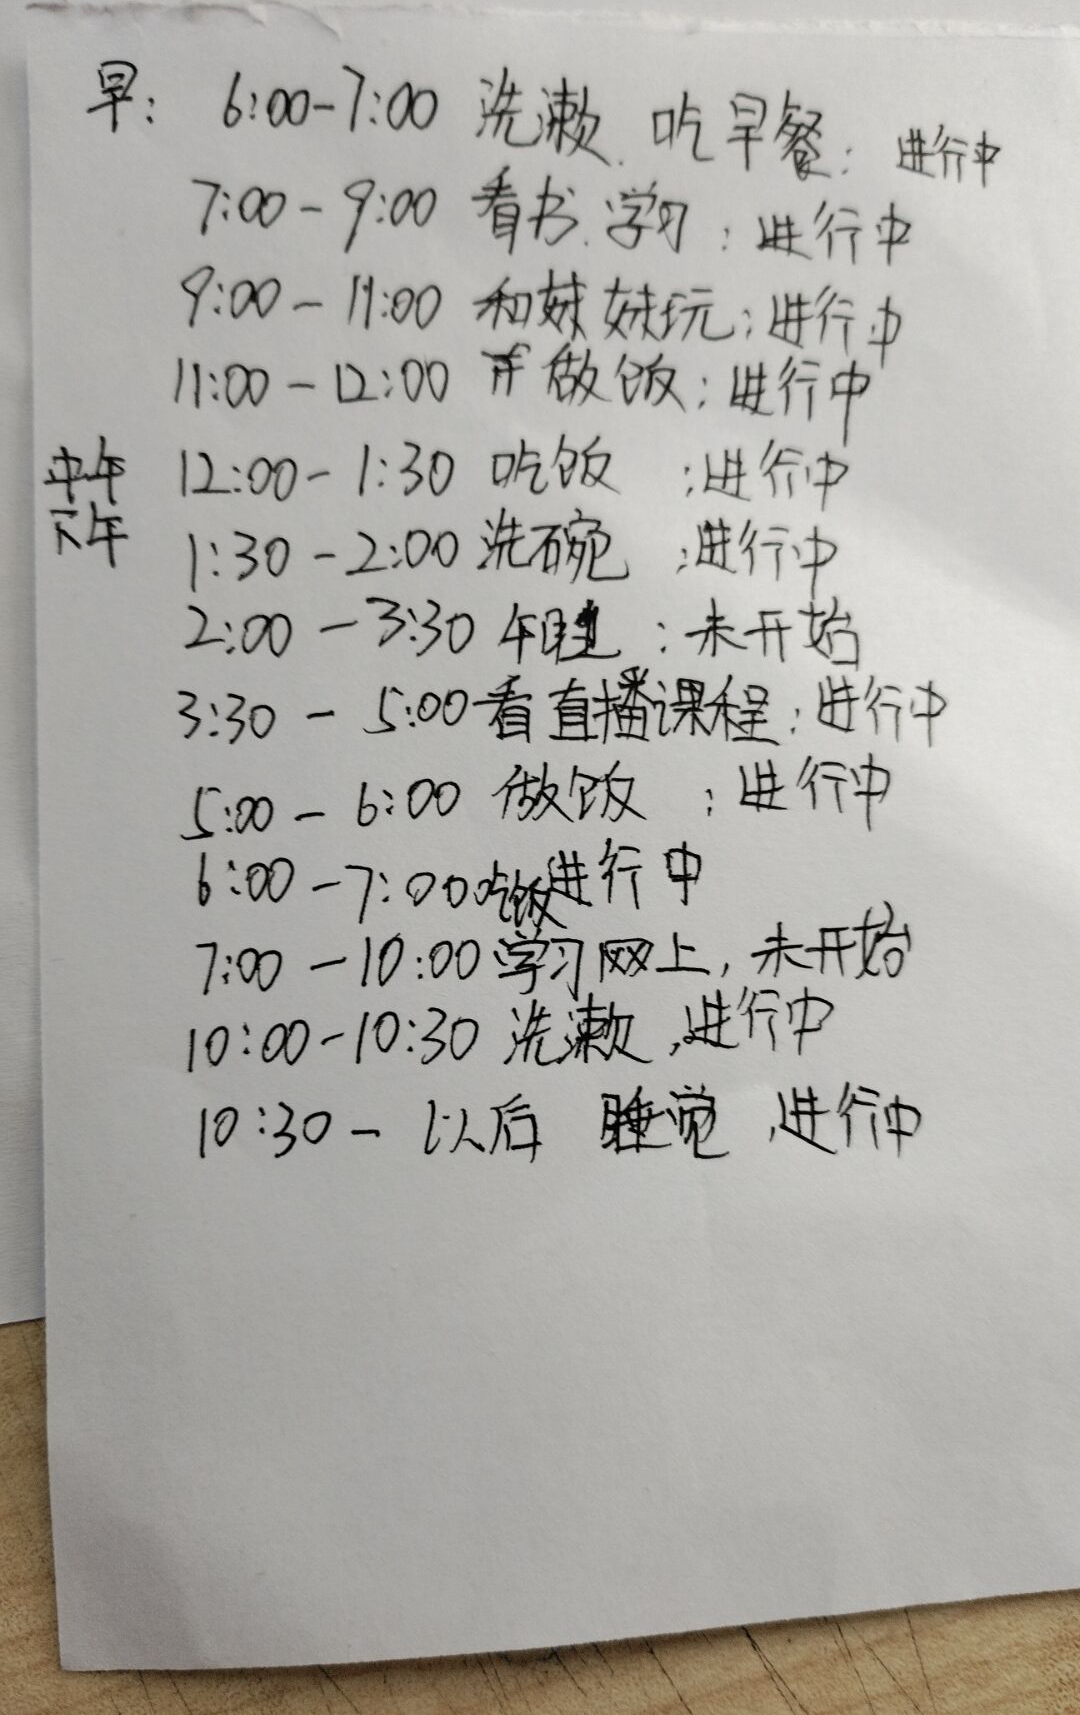 早: 6:00-7:00 洗漱、吃早餐: 进行中
7:00-9:00 看书、学习: 进行中
9:00-11:00 和妹妹玩: 进行中
11:00-12:00 做饭: 进行中
中午 12:00-1:30 吃饭 : 进行中
下午 1:30-2:00 洗碗 : 进行中
2:00-3:30 午睡 : 未开始
3:30-5:00 看直播课程: 进行中
5:00-6:00 做饭 : 进行中
6:00-7:00 吃饭 进行中
7:00-10:00 学习网上, 未开始
10:00-10:30 洗漱, 进行中
10:30-以后 睡觉, 进行中